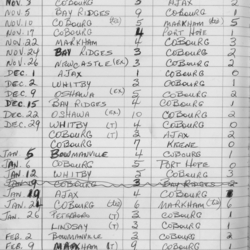 NOV. 3 COBOURG 3 AJAX 2
NOV. 5 BAY RIDGES 9 COBOURG
NOV. 10 COBOURG MARKHAM 5
NOV. 17 COBOURG 4 PORT HOPE
NOV. 22 MARKHAM 4 COBOURG
NOV. 24 BAY RIDGES 3 COBOURG
NOV. 26 NEWCASTLE (EX) 3 COBOURG
DEC. 1 AJAX 1 COBOURG 0
DEC. 2 WHITBY 3 COBOURG
DEC. 9 OSHAWA (EX) 5 COBOURG
DEC. 15 BAY RIDGES 4 COBOURG 1
DEC. 22 OSHAWA (EX) 10 COBOURG 2
DEC. 29 WHITBY (T) 4 COBOURG
COBOURG (T) 2 AJAX 2
COBOURG 7 KEENE 0
JAN. 5 BOWMANVILLE 4 COBOURG
JAN. COBOURG 5 PORT HOPE 0
JAN. 12 WHITBY 2 COBOURG 0
JAN. 19 COBOURG 3 BAY RIDGES 2
JAN. 19 AJAX 4 COBOURG
JAN. 24 COBOURG 6 MARKHAM
JAN. 26 (T) 3 COBOURG 1
LINDSAY (T) 3 COBOURG
FEB. 2 BOWMANVILLE 3 COBOURG 2
FEB. 9 MARKHAM (T) 9 COBOURG